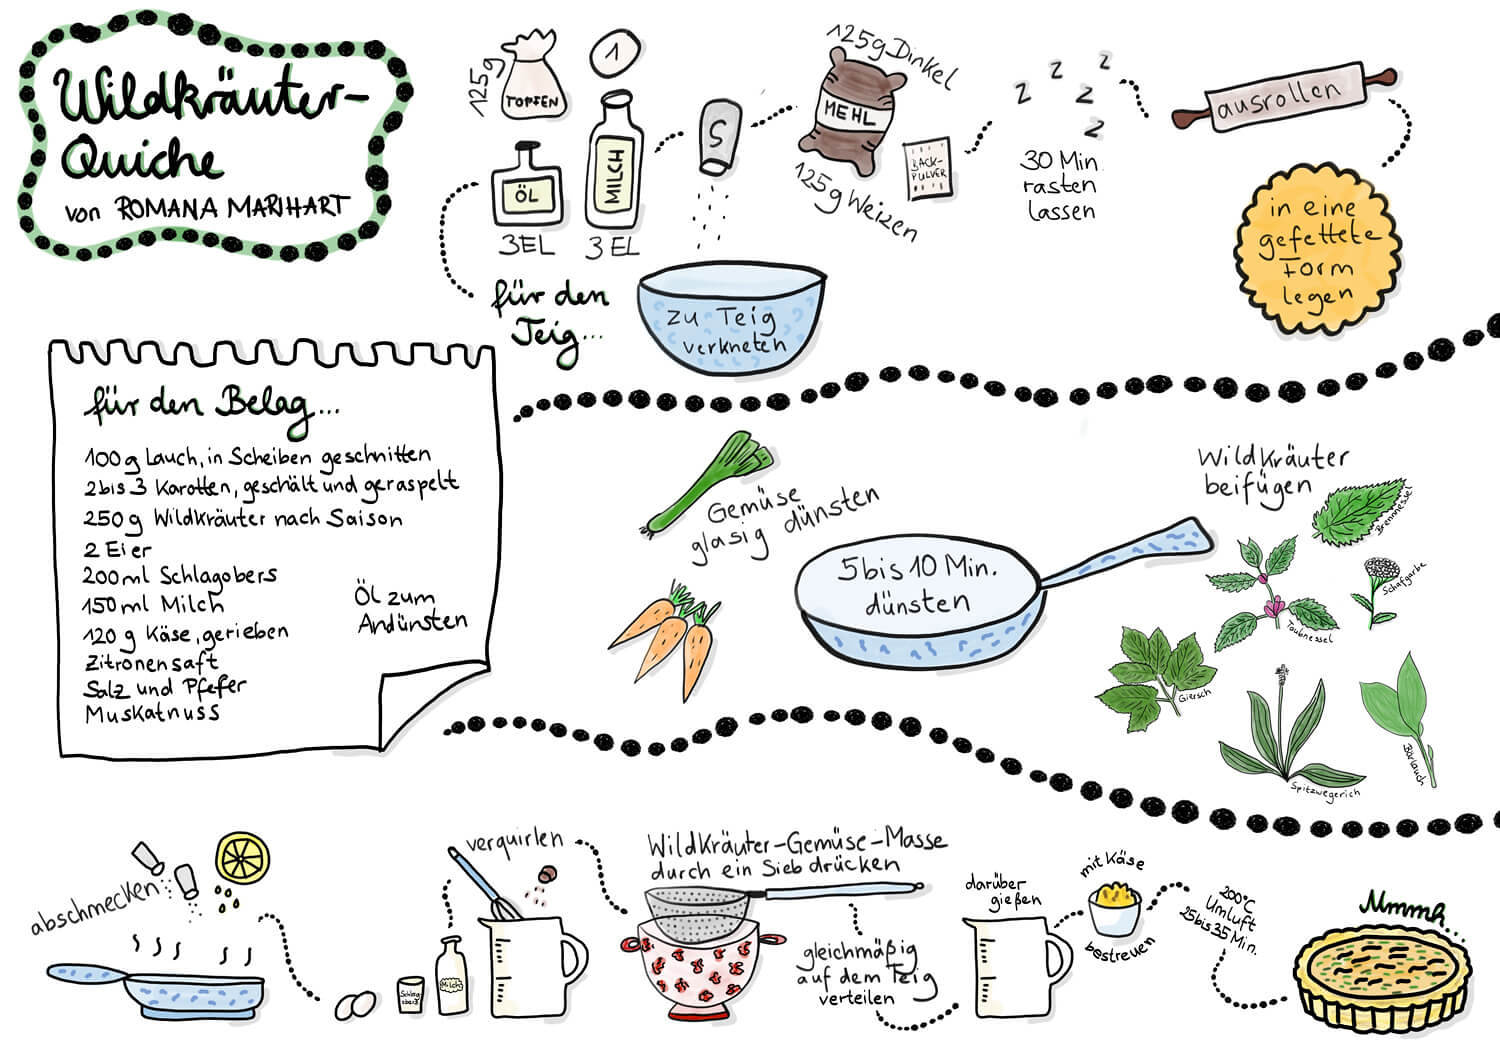 Wildkräuter-
Quiche
von ROMANA MARIHART
125g
TOPFEN
1
ÖL
3EL
MILCH
3 EL
S
125g Dinkel
MEHL
125g Weizen
BACK-
PULVER
z z z z z
30 Min
rasten
lassen
ausrollen
in eine
gefettete
Form
legen
für den
Teig...
zu Teig
verkneten
für den Belag...
100g Lauch, in Scheiben geschnitten
2 bis 3 Karotten, geschält und geraspelt
250g Wildkräuter nach Saison
2 Eier
200ml Schlagobers
150ml Milch
120 g Käse, gerieben
Zitronensaft
Salz und Pfefer
Muskatnuss
Öl zum
Andünsten
Gemüse
glasig dünsten
5 bis 10 Min.
dünsten
Wildkräuter
beifügen
Brennnessel
Schafgarbe
Taubnessel
Giersch
Spitzwegerich
Bärlauch
abschmecken
Schlag
obers
Milch
verquirlen
Wildkräuter-Gemüse-Masse
durch ein Sieb drücken
gleichmäßig
auf dem Teig
verteilen
darüber
gießen
mit Käse
bestreuen
200°C
Umluft
25 bis 35 Min.
Mmmh